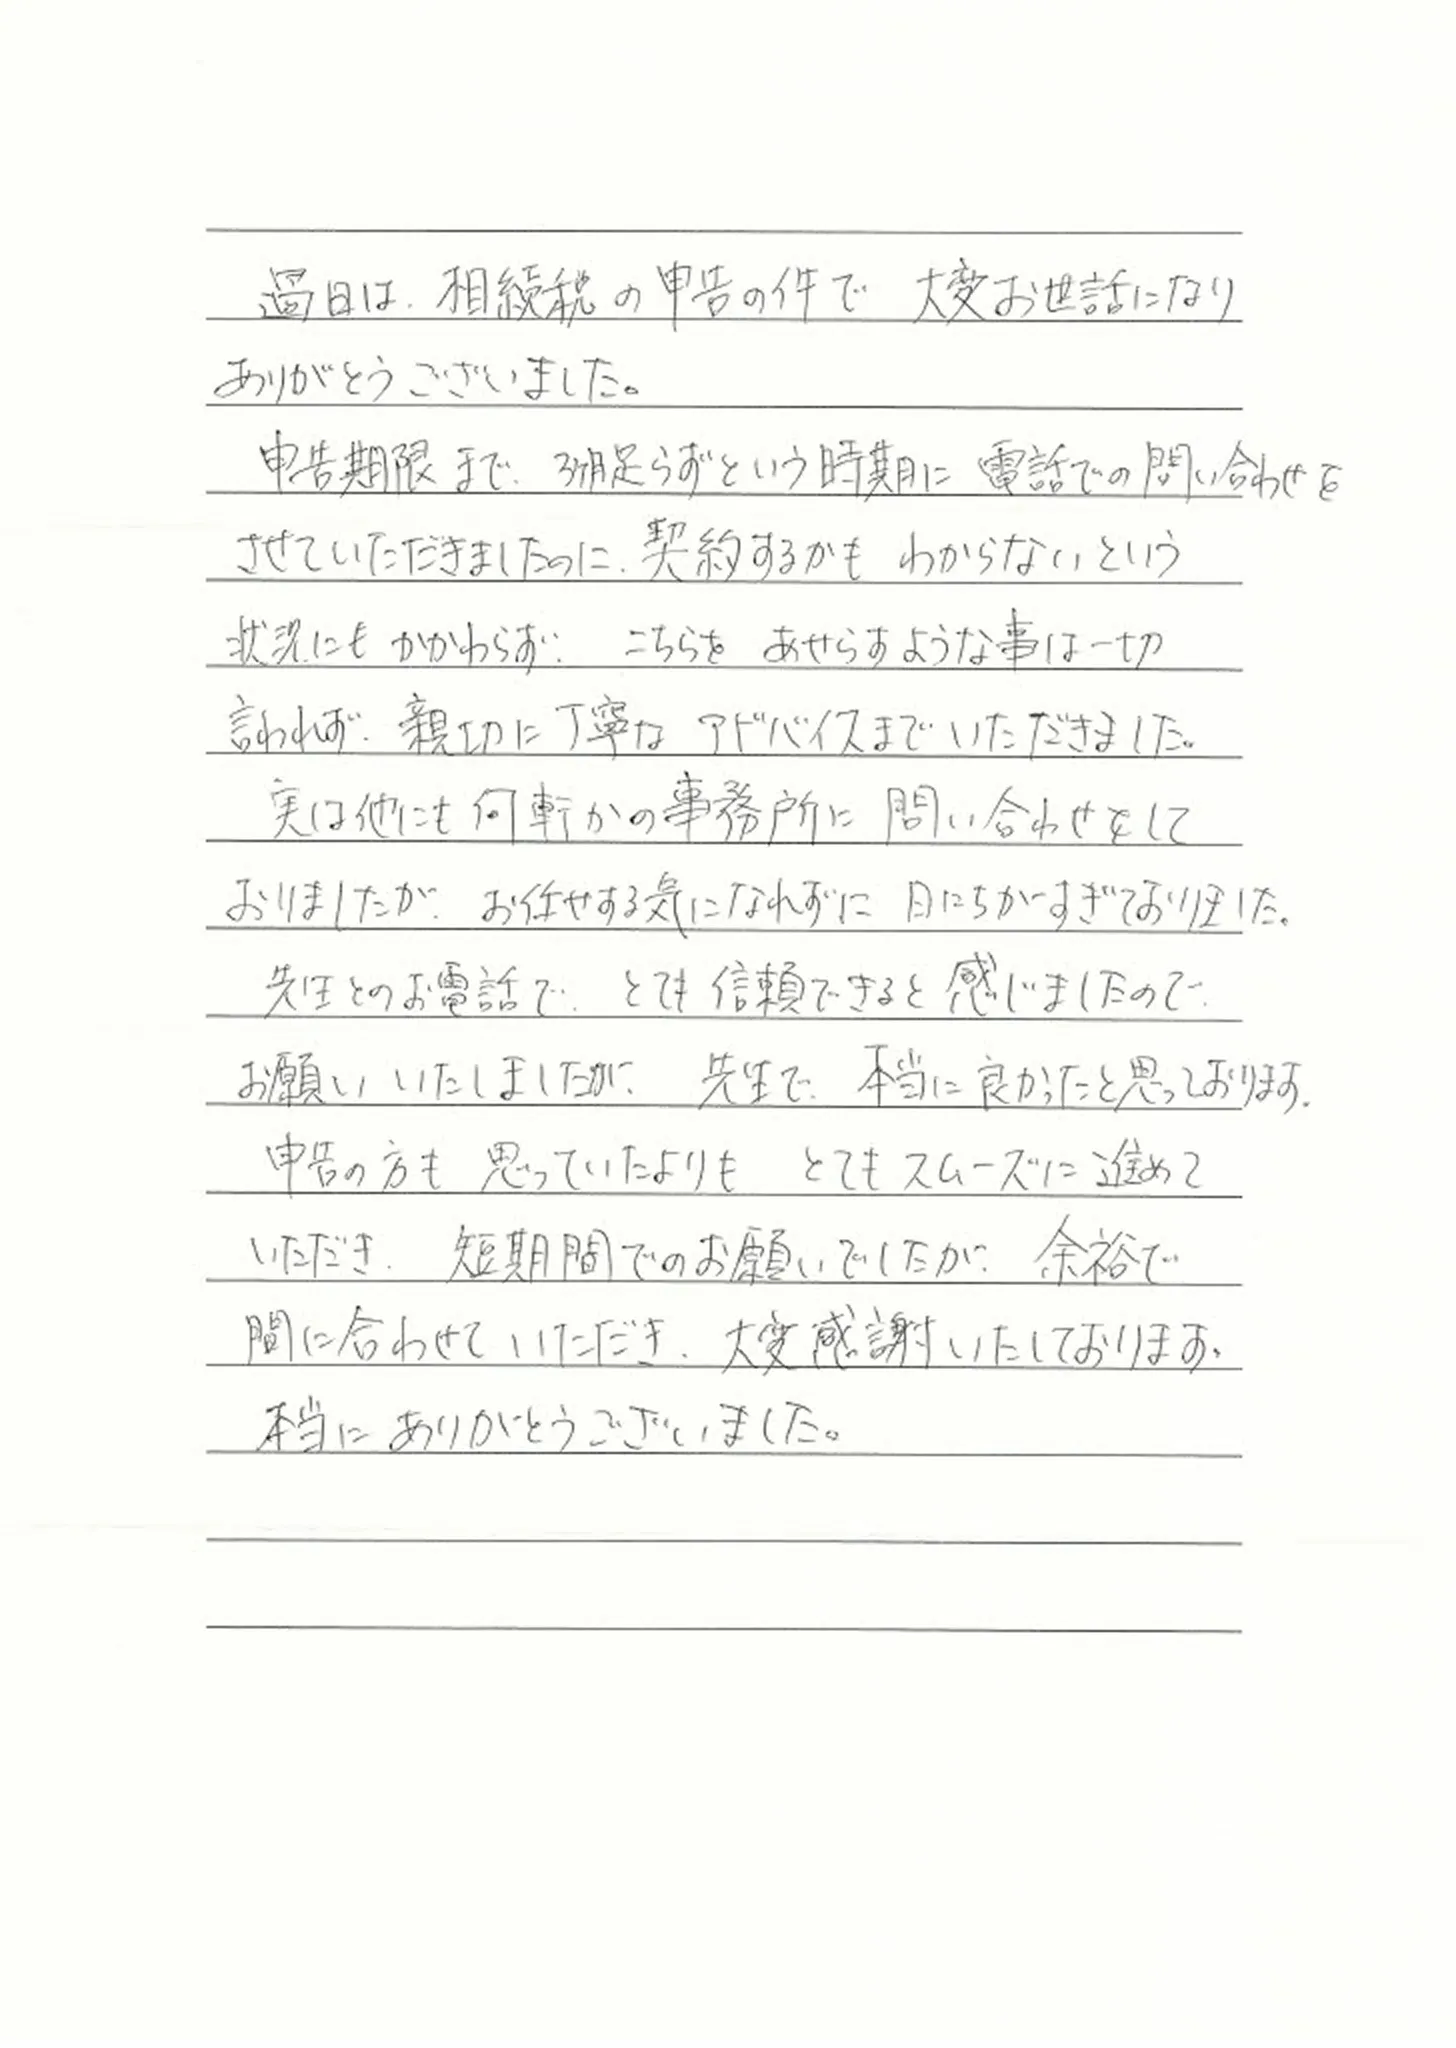 過日は、相続税の申告の件で 大変お世話になり
ありがとうございました。
申告期限まで、3ヶ月足らずという時期に 電話での問い合わせを
させていただきましたのに、契約するかも わからないという
状況にも かかわらず、 こちらを あせらすような事は一切
言われず、親切に丁寧な アドバイスまでいただきました。
実は他にも 何軒かの事務所に 問い合わせをして
おりましたが、 お任せする気になれずに 日にちがすぎておりました。
先生とのお電話で、 とても 信頼できると 感じましたので、
お願い いたしましたが、 先生で、本当に良かったと思っております。
申告の方も 思っていたよりも とてもスムーズに進めて
いただき、 短期間でのお願いでしたが、 余裕で
間に合わせていただき、大変感謝いたしております。
本当に ありがとうございました。